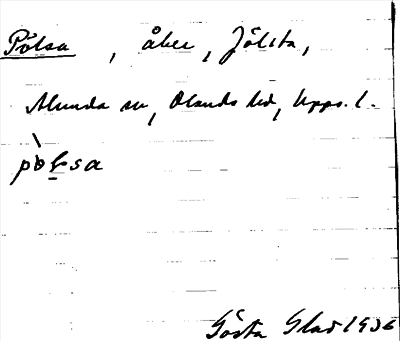 Pölsa, åker, Jölsta,
Alunda sn, Olands hd, Upps. l.
pò̀lsa
Gösta Glad 1936